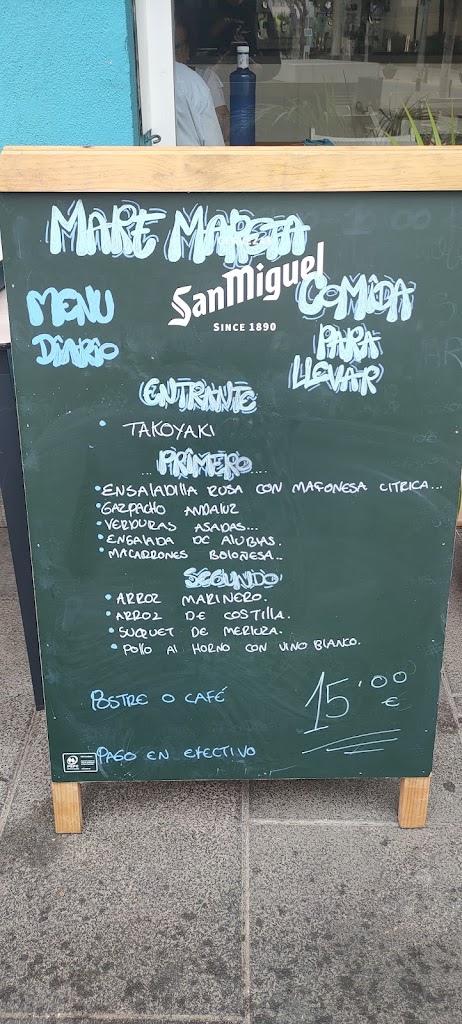 MARE MARETA
San Miguel
SINCE 1890
MENU
DIARIO
COMIDA
PARA
LLEVAR
ENTRANTE
• TAKOYAKI
... PRIMERO ....
• ENSALADILLA RUSA CON MAFONESA CITRICA...
• GAZPACHO ANDALUZ
• VERDURAS ASADAS...
• ENSALADA DE ALUBIAS..
• MACARRONES BOLOÑESA..
SEGUNDO
• ARROZ MARINERO.
• ARROZ DE COSTILLA.
• SUQUET DE MERLUZA.
• POLLO AL HORNO CON VINO BLANCO.
POSTRE O CAFÉ
15'00
€
PAGO EN EFECTIVO